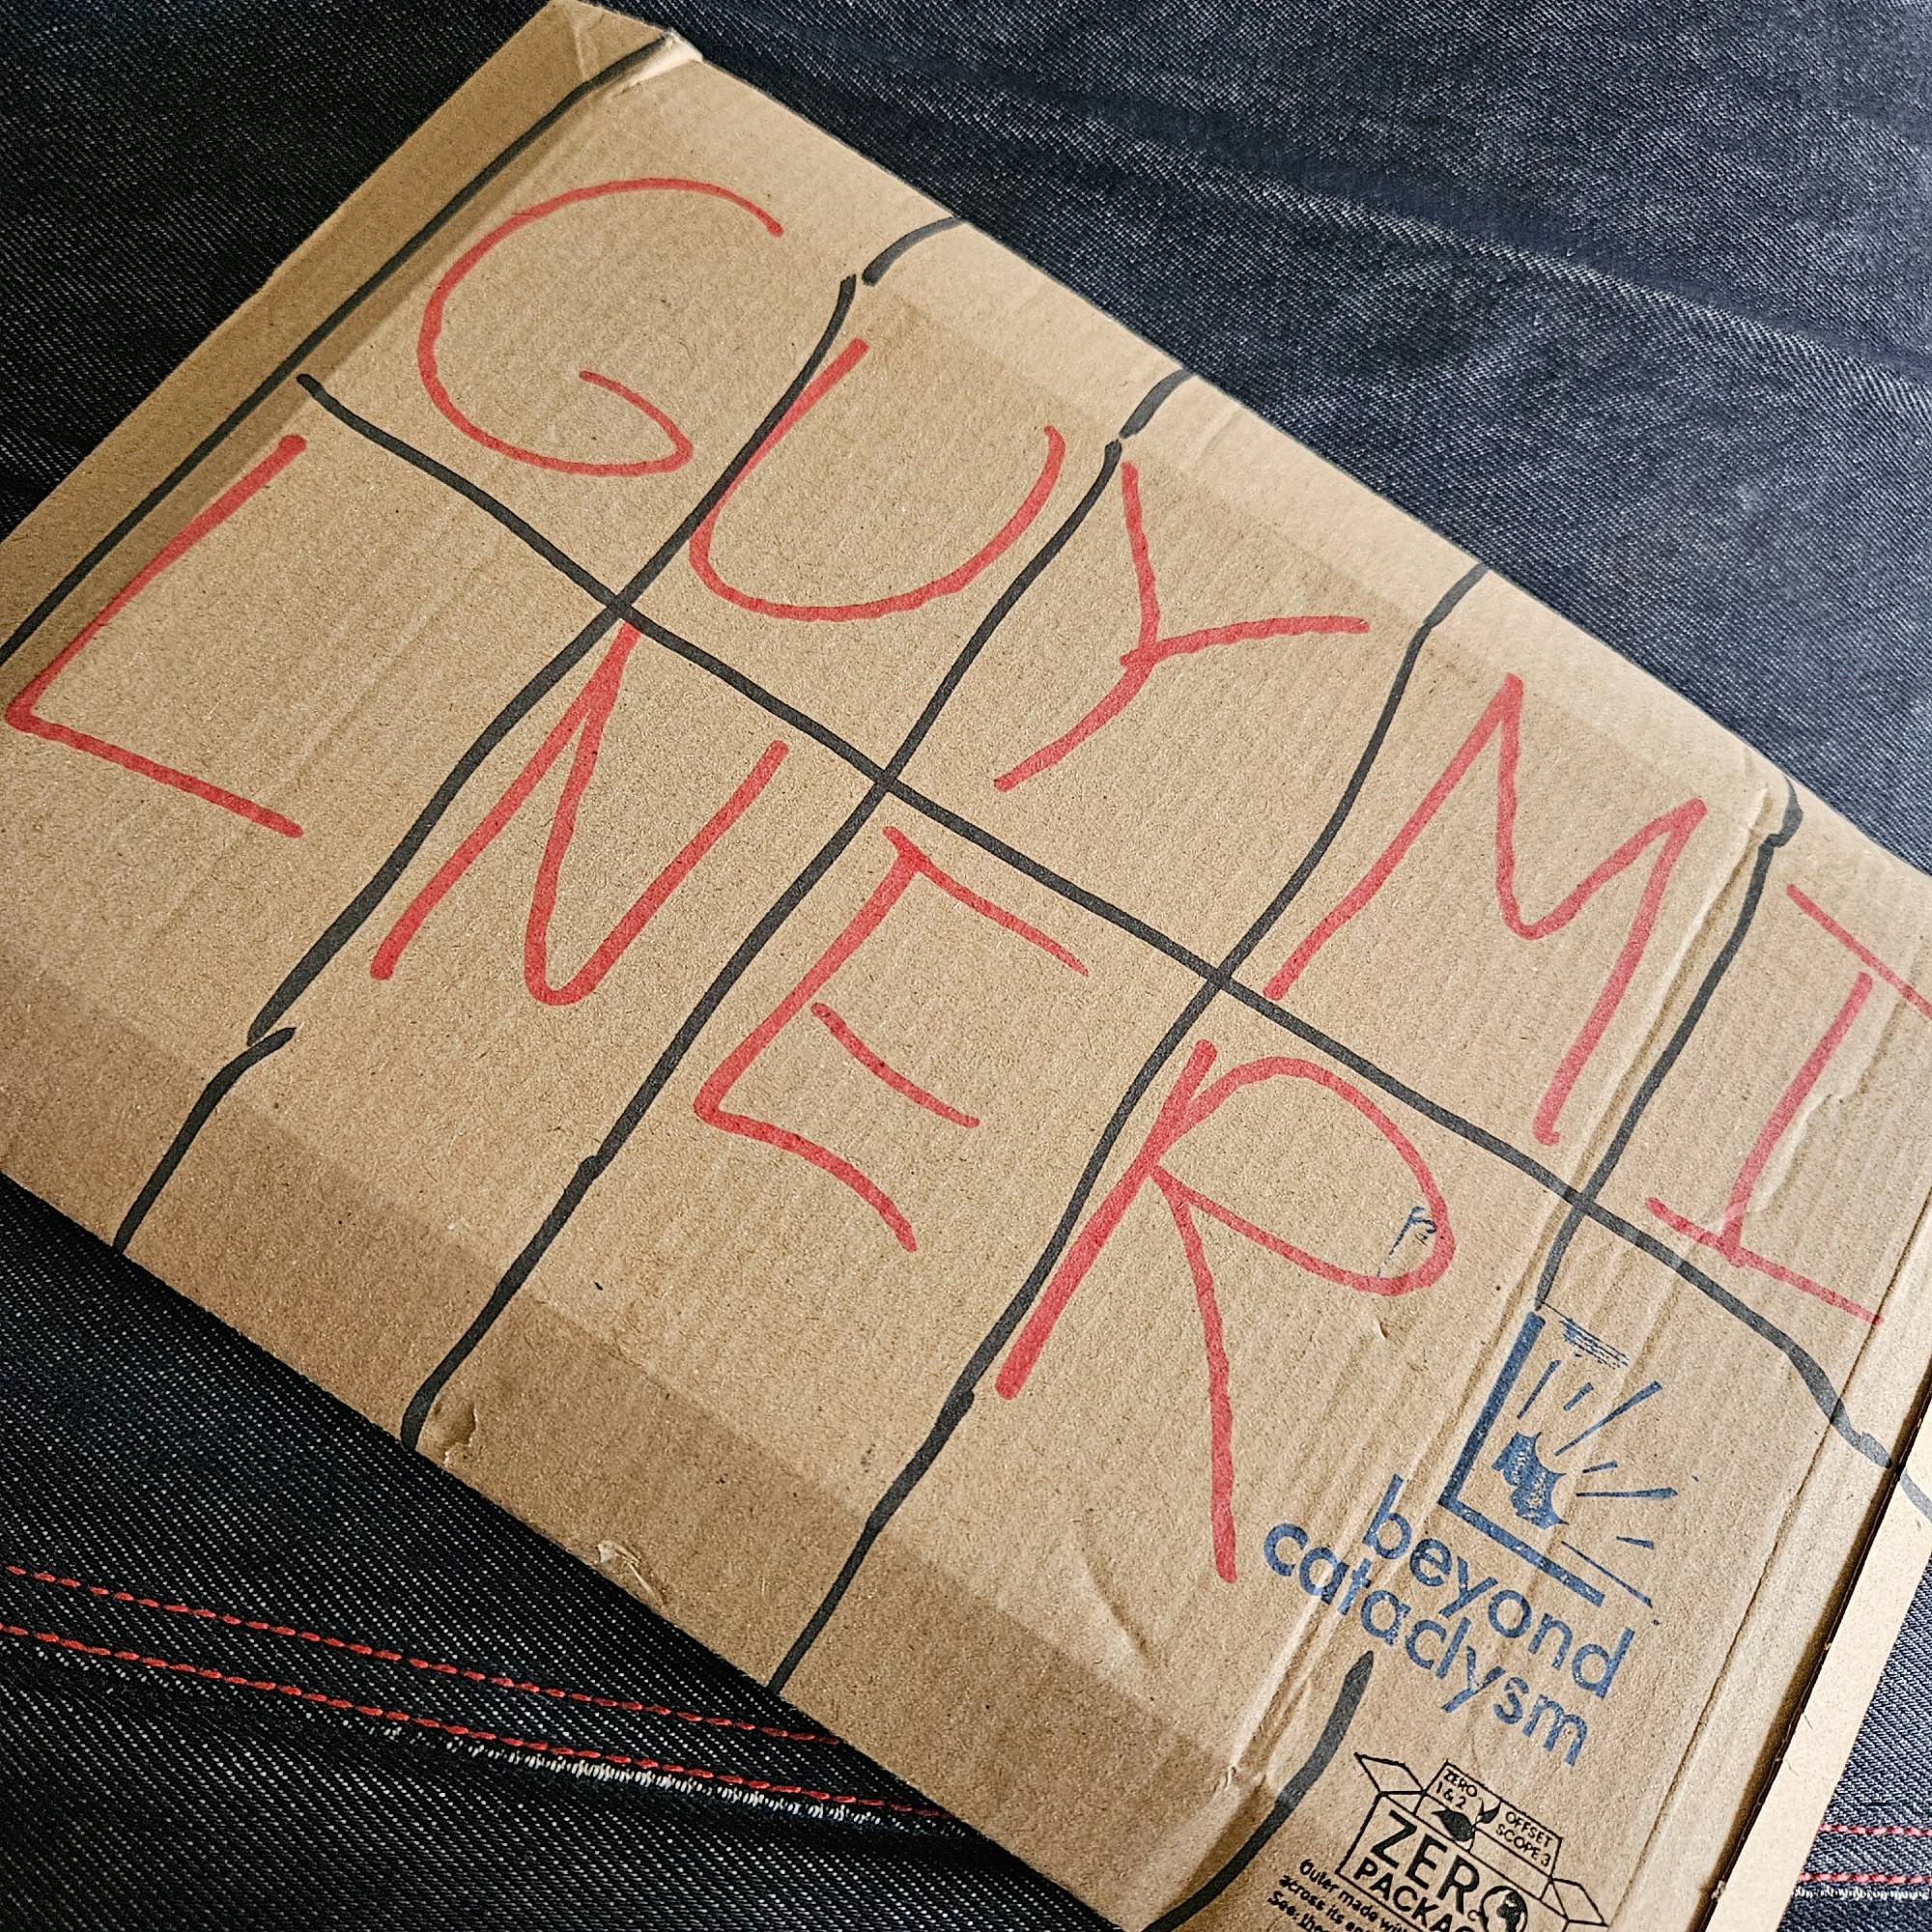 GUYMI
LNER
beyond
cataclysm
ZERO
1 & 2
OFFSET
SCOPE 3
ZERO
Outer made
across its
See: